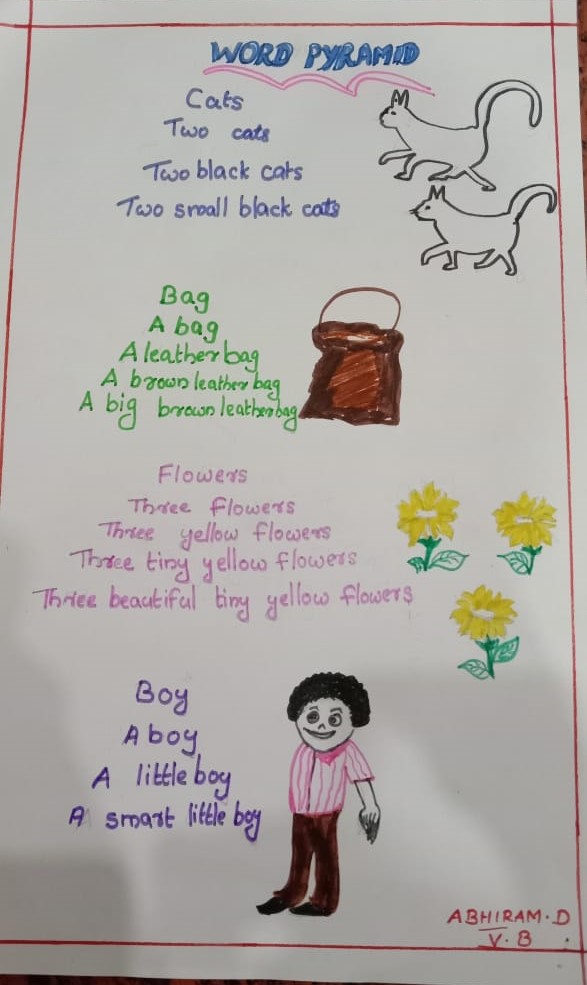 WORD PYRAMID
Cats
Two cats
Two black cats
Two small black cats
Bag
A bag
A leather bag
A brown leather bag
A big brown leather bag
Flowers
Three flowers
Three yellow flowers
Three tiny yellow flowers
Three beautiful tiny yellow flowers
Boy
A boy
A little boy
A smart little boy
ABHIRAM.D
V.B